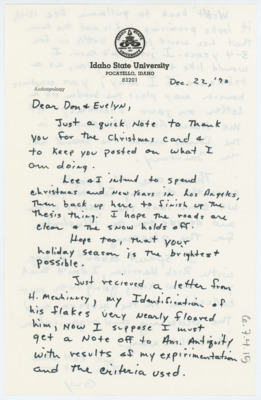 Idaho State University
POCATELLO, IDAHO
83201
Anthropology
Dec. 22, '70
Dear Don & Evelyn,
Just a quick Note to Thank
you for the Christmas card &
to Keep you posted on what I
am doing.
Lee & I intend to spend
christmas and New Years in Los Angeles,
Then back up here to finish up the
thesis thing. I hope the roads are
clear & the snow holds off.
Hope too, that your
holiday season is the brightest
possible.
Just recieved a letter from
H. my Identification of
his flakes very nearly floored
him, Now I suppose I must
get a Note off to Am. Antiquity
with results of my expirimentation
and the criteria used.